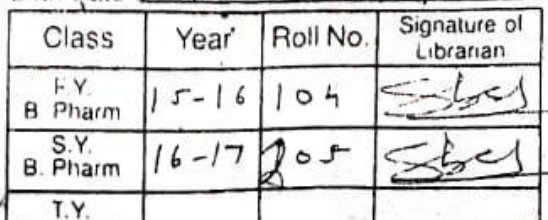 Class Year Roll No. Signature of
Librarian
F.Y.
B. Pharm 15-16 104
S.Y.
B. Pharm 16-17 205
T.Y.